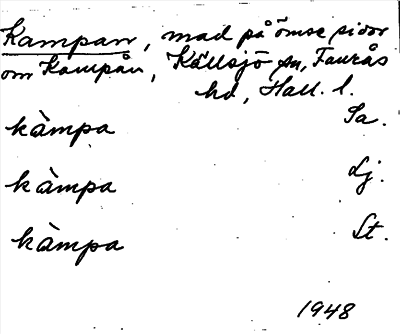 Kampan, mad på ömse sidor
om Kampån, Källsjö sn, Faurås
hd, Hall. l.
kàmpa Sa.
kàmpa Lj.
kàmpa St.
1948